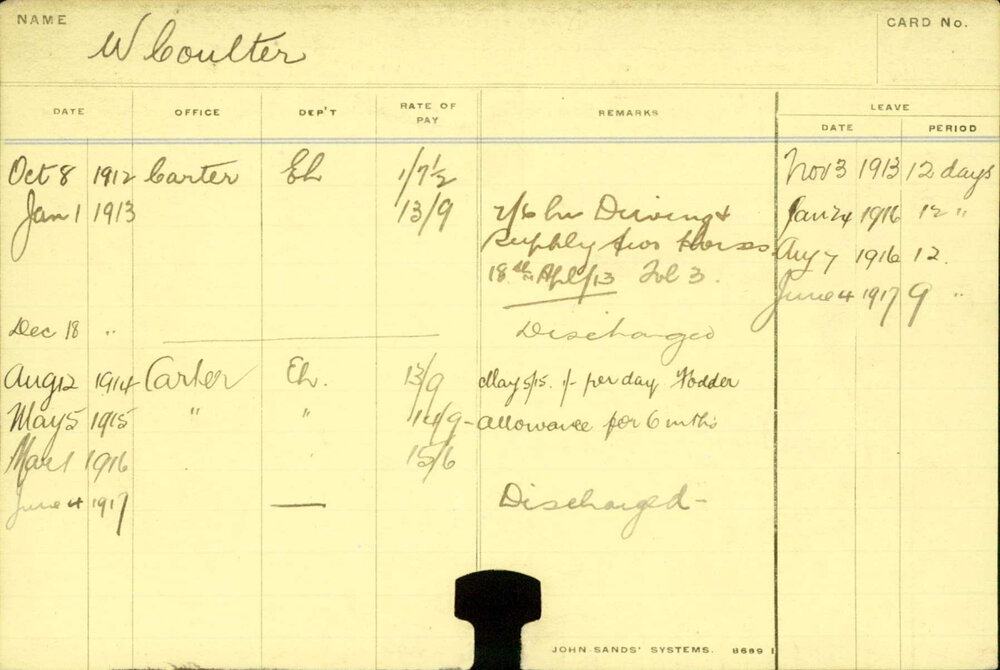 NAME
W Coulter
CARD No.
DATE OFFICE DEP'T RATE OF PAY REMARKS LEAVE
DATE PERIOD
Oct 8 1912 Carter Eh 1/7½ Nov 3 1913 12 days
Jan 1 1913 13/9 2/6 hr Driving & Jan 24 1916 12 "
supply two Horses Aug 7 1916 12.
18th Apl/13 Fol 3. June 4 1917 9 "
Dec 18 " Discharged
Aug 12 1914 Carter Eh. 13/9 May 5/15. 1/- per day Fodder
May 5 1915 " " 14/9 - allowance for 6 mths
Mar 1 1916 15/6
June 4 1917 — Discharged -
JOHN SANDS' SYSTEMS. 8689